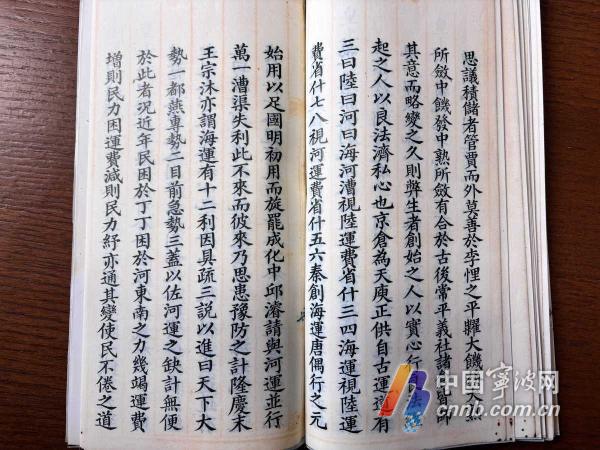 思議積儲者管賈而外莫善於李悝之平糶大饑大熟
所斂中饑發中熟所斂有合於古後常平義社諸
其意而略變之久則弊生者創始之人以實心行
起之人以良法濟私心也京倉為天庾正供自古運道有
三曰陸曰河曰海河漕視陸運費省什三四海運視陸運
費省什七八視河運費省什五六秦創海運唐偶行之元
始用以足國明初用而旋罷成化中邱濬請與河運並行
萬一漕渠失利此不來而彼來乃思患豫防之計隆慶末
王宗沐亦謂海運有十二利因具疏三說以進曰天下大
勢一都燕專勢二目前急勢三蓋以佐河運之缺計無便
於此者況近年民困於丁丁困於河東南之力幾竭運費
增則民力困運費減則民力紓亦通其變使民不倦之道
中国宁波网
cnnb.com.cn